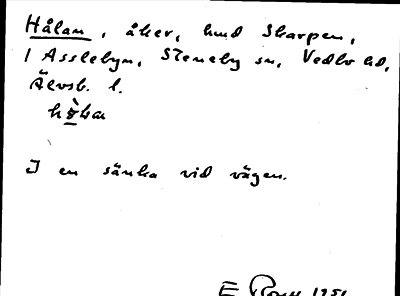 Hålan, åker, hmd Skarpen,
1 Asslebyn, Steneby sn, Vedbo hd,
Älvsb. l.

I en sänka vid vägen.
E 1951